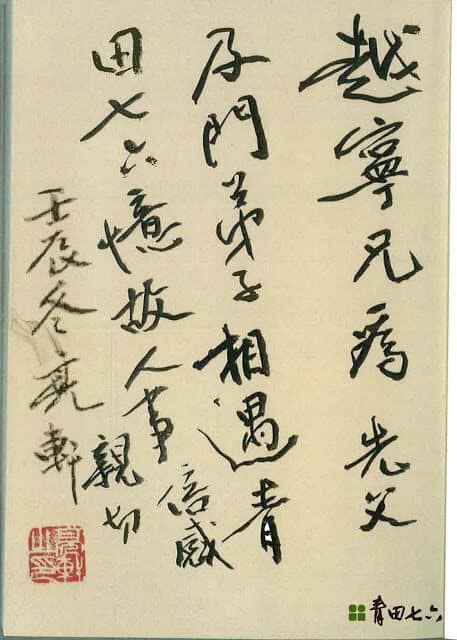 越寧兄為 先父
及門弟子相遇青
田七六憶故人事倍感
親切
壬辰冬亮軒
青田七六